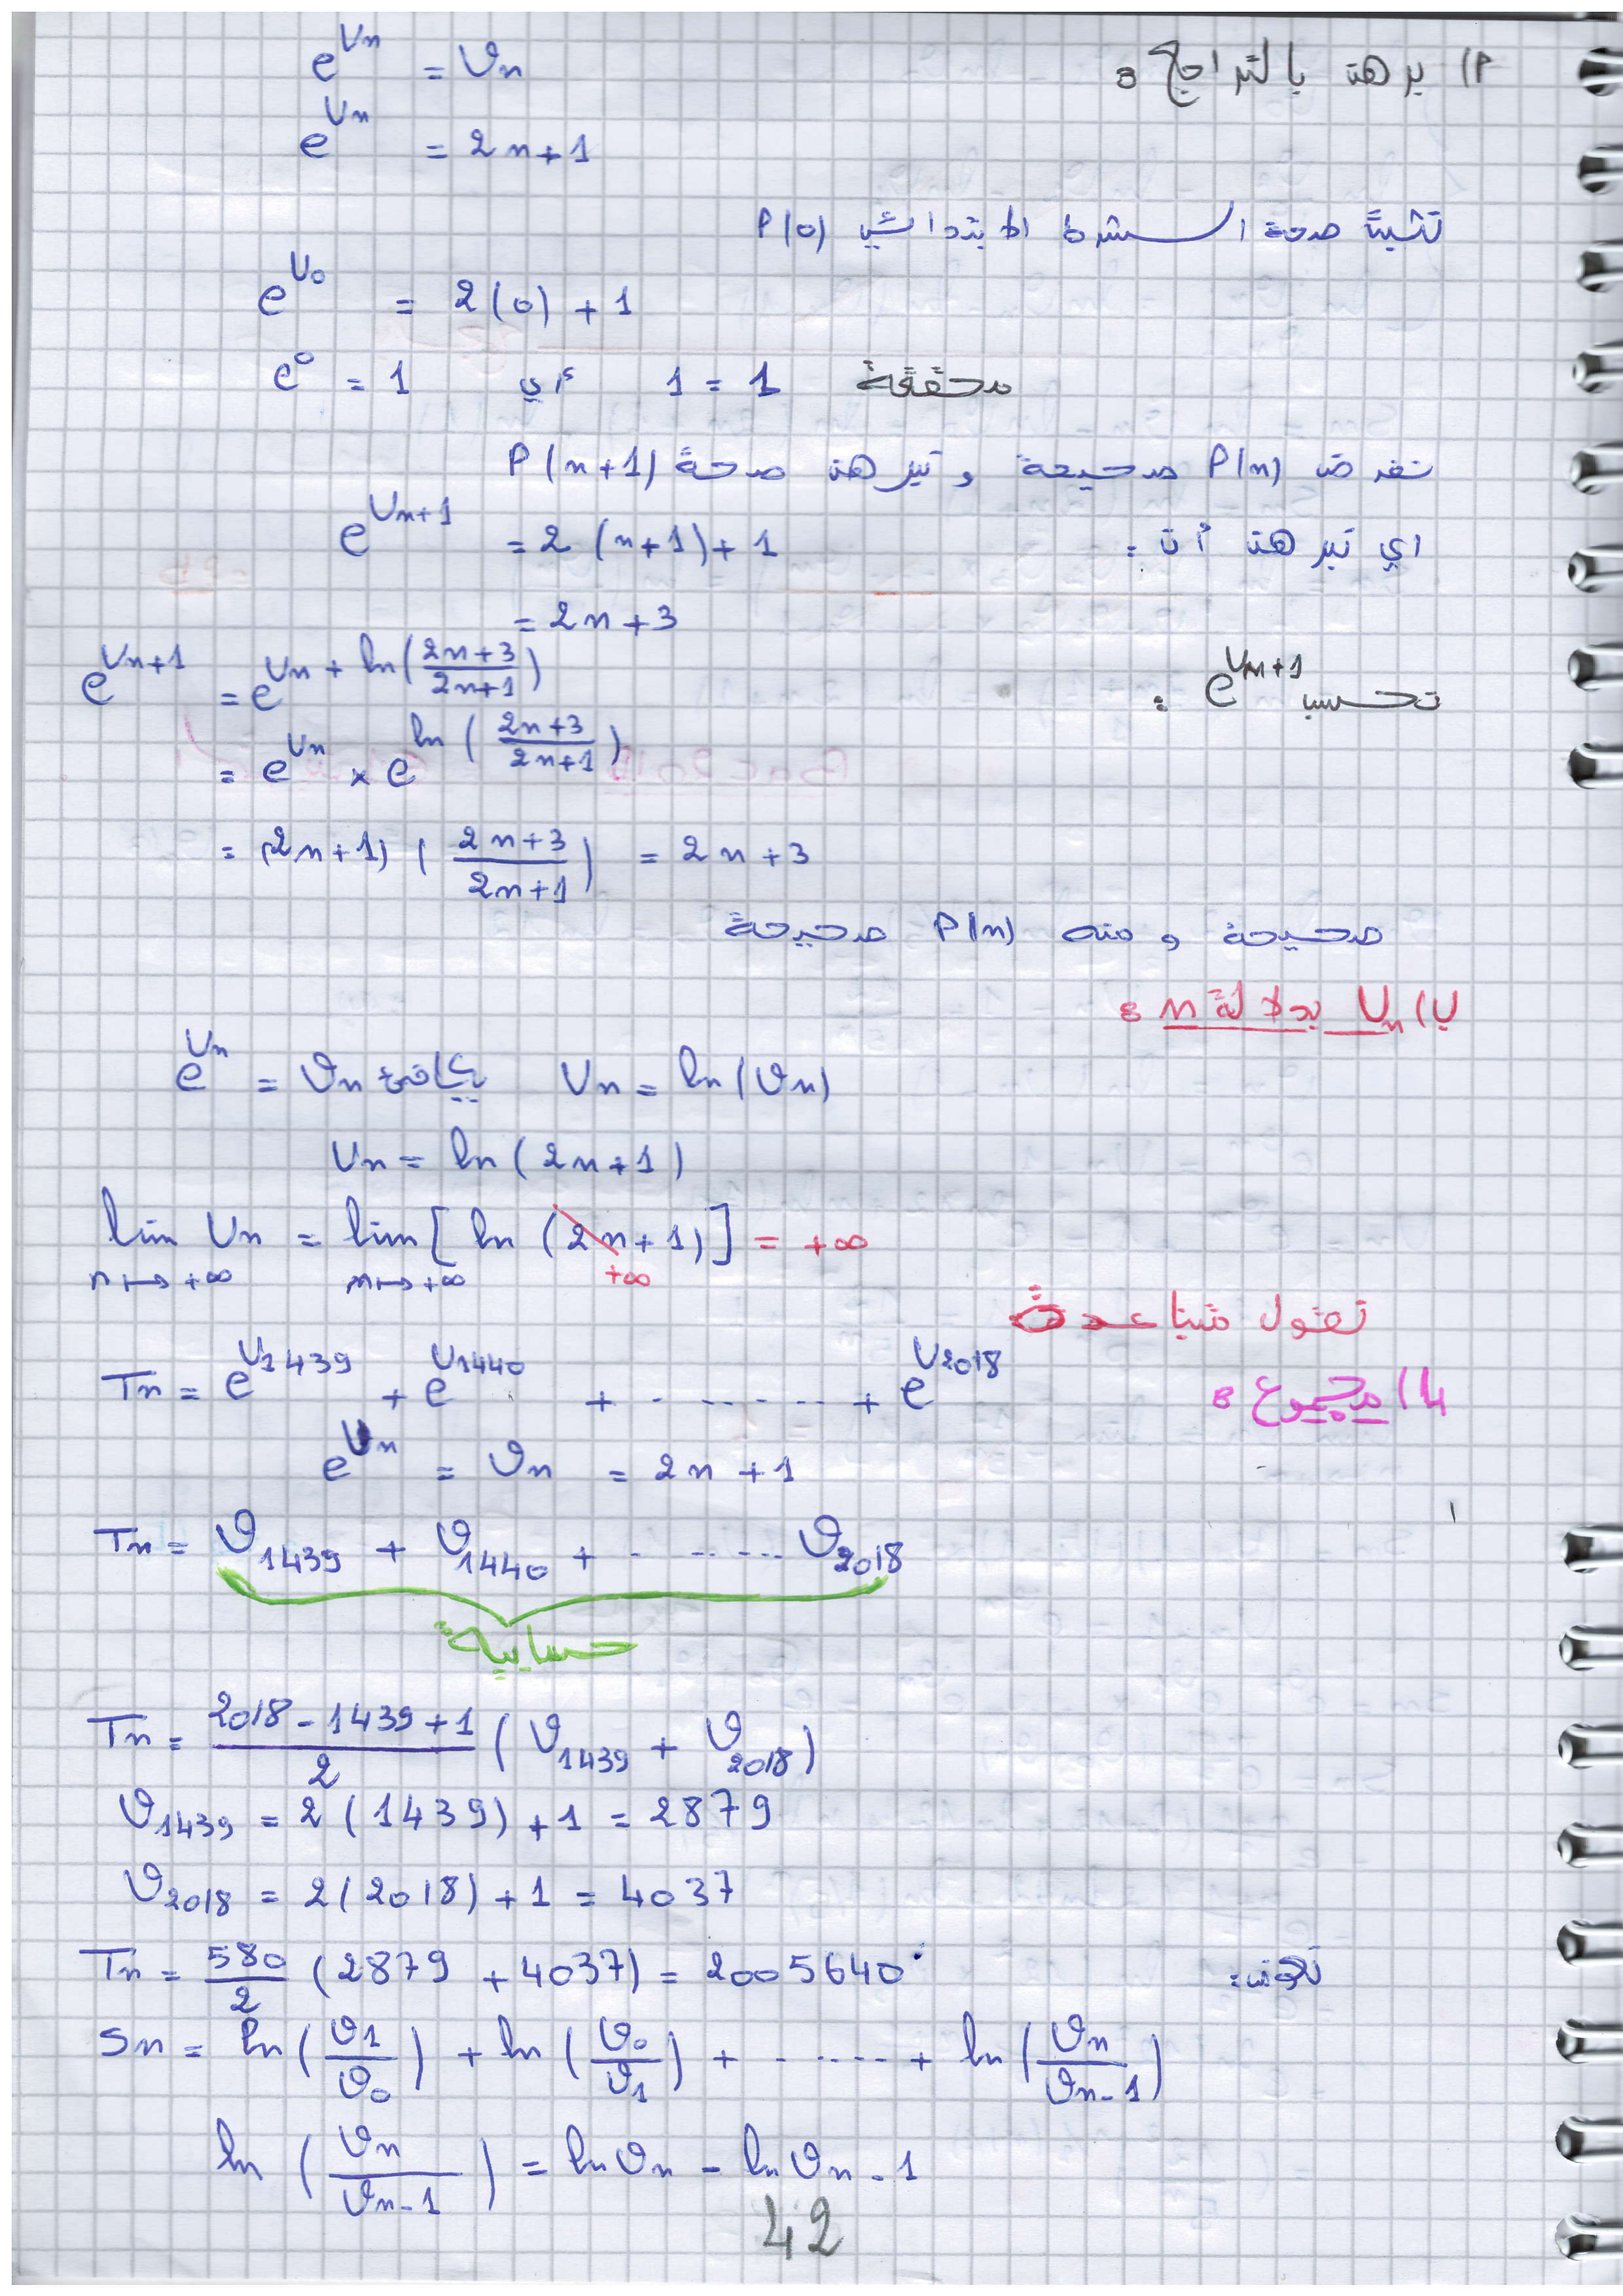 1P) برهن بالتراجع :
e^{Un} = 𝒱n
e^{Un} = 2n+1
نثبت صحة الشرط الابتدائي P(0)
e^{U0} = 2(0) + 1
e^0 = 1 أي 1 = 1 محققة
نفرض P(n) صحيحة و نبرهن صحة P(n+1)
اي نبرهن أن : e^{Un+1} = 2(n+1)+1
= 2n+3
نحسب e^{Un+1} :
e^{Un+1} = e^{Un + ln((2n+3)/(2n+1))}
= e^{Un} × e^{ln((2n+3)/(2n+1))}
= (2n+1) ((2n+3)/(2n+1)) = 2n+3
صحيحة و منه P(n) صحيحة
ب) Un بدلالة n :
e^{Un} = 𝒱n يكافئ Un = ln(𝒱n)
Un = ln(2n+1)
lim Un = lim [ln (2n+1)] = +∞
n↦+∞ n↦+∞ +∞
نقول متباعدة
4) مجموع :
Tn = e^{U1439} + e^{U1440} + ........ + e^{U2018}
e^{Un} = 𝒱n = 2n+1
Tn = 𝒱1439 + 𝒱1440 + ........ 𝒱2018
حسابية
Tn = (2018-1439+1)/2 (𝒱1439 + 𝒱2018)
𝒱1439 = 2(1439)+1 = 2879
𝒱2018 = 2(2018)+1 = 4037
Tn = 580/2 (2879+4037) = 2005640
Sn = ln(𝒱1/𝒱0) + ln(𝒱0/𝒱1) + ...... + ln(𝒱n/𝒱n-1)
ln(𝒱n/𝒱n-1) = ln𝒱n - ln𝒱n-1
42